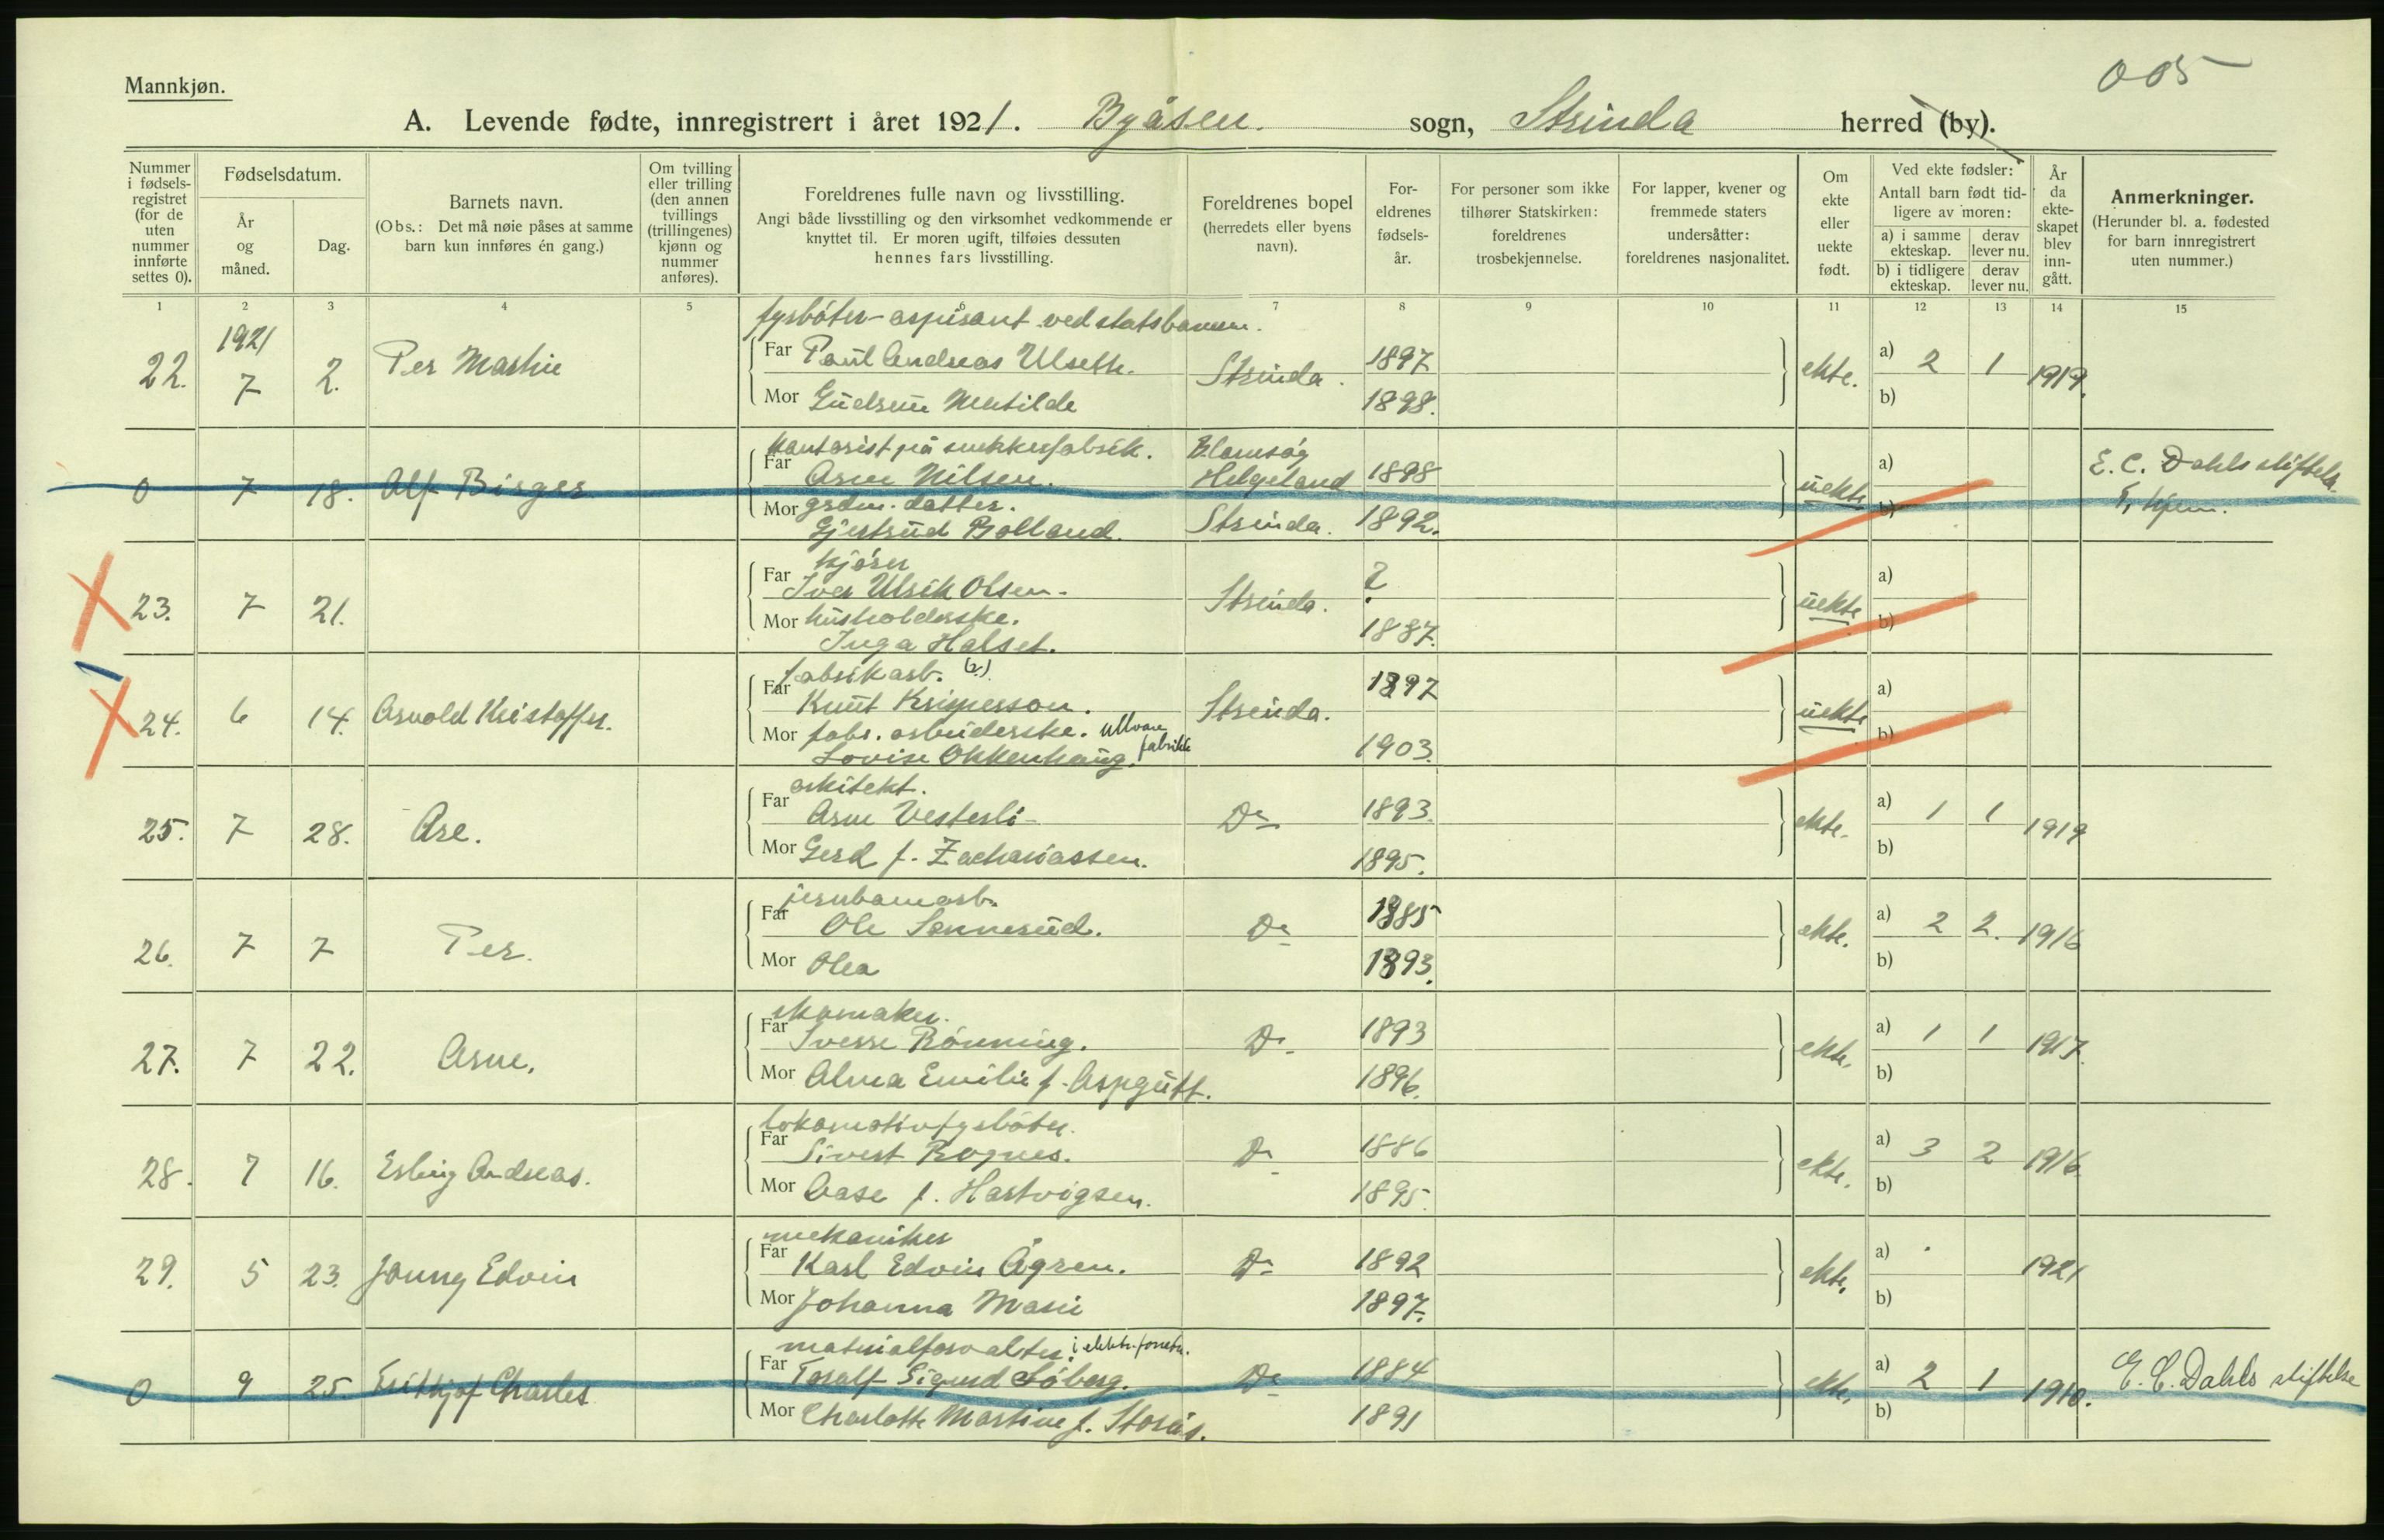 005
Mannkjøn.
A. Levende fødte, innregistrert i året 1921. Byåsen. sogn, Strinda herred (by).
Nummer i fødselsregistret (for de uten nummer innførte settes 0).
Fødselsdatum.
År og måned.
Dag.
Barnets navn.
(Obs.: Det må nøie påses at samme barn kun innføres én gang.)
Om tvilling eller trilling (den annen tvillings (trillingenes) kjønn og nummer anføres).
Foreldrenes fulle navn og livsstilling.
Angi både livsstilling og den virksomhet vedkommende er knyttet til. Er moren ugift, tilføies dessuten hennes fars livsstilling.
Foreldrenes bopel (herredets eller byens navn).
Foreldrenes fødselsår.
For personer som ikke tilhører Statskirken: foreldrenes trosbekjennelse.
For lapper, kvener og fremmede staters undersåtter: foreldrenes nasjonalitet.
Om ekte eller uekte født.
Ved ekte fødsler: Antall barn født tidligere av moren:
a) i samme ekteskap. derav lever nu.
b) i tidligere ekteskap. derav lever nu.
År da ekteskapet blev inngått.
Anmerkninger.
(Herunder bl. a. fødested for barn innregistrert uten nummer.)
1 2 3 4 5 6 7 8 9 10 11 12 13 14 15
fyrbøter-aspirant ved statsbanene.
22. 1921 7 2. Per Martin Far Paul Andreas Ulseth. Strinda. 1897 ekte. a) 2 1 1919.
Mor Gudrun Matilde 1898. b)
kontorist på snekkerfabrik.
0 7 18. Alf Birger Far Arne Nilsen. Helgeland 1898 uekte a) E. C. Dahls stiftelse
Mor grdm. datter. b) T.hjem.
Gjertrud Bolland. Strinda. 1892.
kjører
23. 7 21. Far Iver Ulrik Olsen. Strinda. ? uekte a)
Mor husholderske. b)
Inga Halset. 1887.
fabrikarb. (2)
24. 6 14. Arnold Kristoffer. Far Knut Strinda. 1897 uekte a)
Mor fabr. arbeiderske. ullvarefabrikk b)
Lovise Okkenhaug. 1903.
arkitekt.
25. 7 28. Are. Far Arne Vesterli Do 1893. ekte. a) 1 1 1919
Mor Gerd f. Zachariassen. 1895. b)
jernbanearb.
26. 7 7 Per. Far Ole Sannerud. Do 1885 ekte. a) 2 2. 1916
Mor Olea 1893. b)
skomaker.
27. 7 22. Arne. Far Sverre Rønning. Do 1893 ekte. a) 1 1 1917.
Mor Alma Emilie f. Aspgutt. 1896. b)
lokomotivfyrbøter.
28. 7 16. Erling Andreas. Far Sivert Rognes. Do 1886 ekte. a) 3 2 1916.
Mor Aase f. Hartvigsen. 1895. b)
mekaniker
29. 5 23. Jonny Edvin Far Karl Edvin Ågren. Do 1892 ekte. a) 1921
Mor Johanna Marie 1897. b)
materialforvalter. i elektr. forretn.
0 9 25. Frithjof Charles Far Toralf Sigurd Søberg. Do 1884 ekte. a) 2 1 1910. E. C. Dahls stiftelse
Mor Charlotte Martine f. Storås. 1891 b)